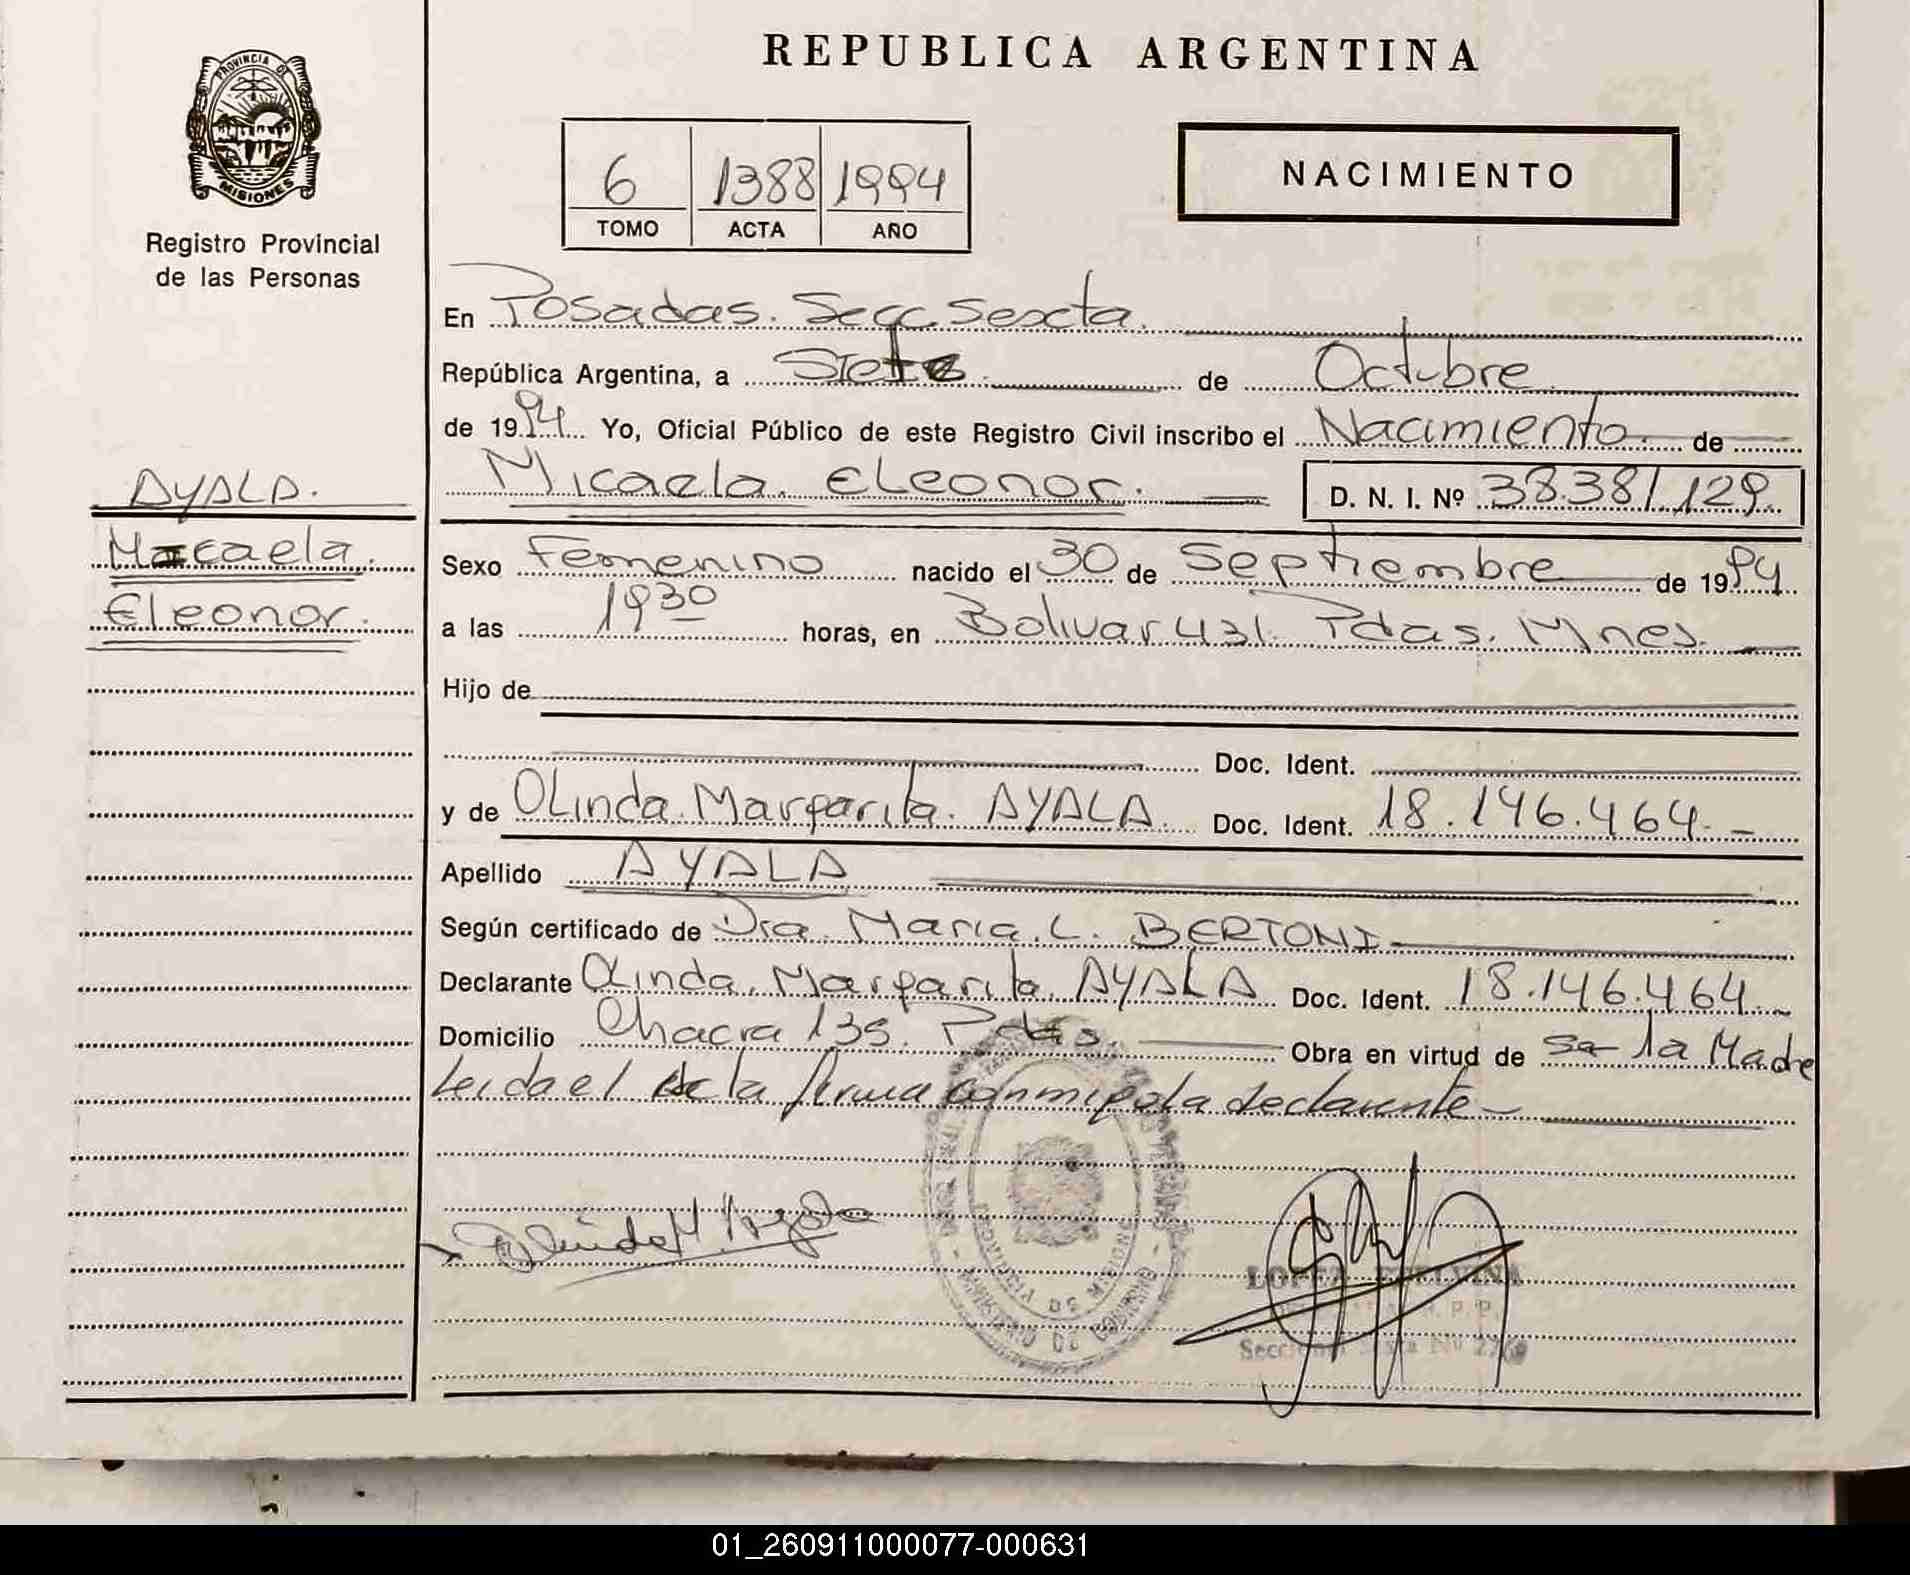 REPUBLICA ARGENTINA
PROVINCIA DE
MISIONES
Registro Provincial
de las Personas
6 1388 1994
TOMO ACTA AÑO
NACIMIENTO
En Posadas. Secc. Sexta.
República Argentina, a Siete de Octubre
de 1994 Yo, Oficial Público de este Registro Civil inscribo el Nacimiento de
AYALA.
Micaela Eleonor. D. N. I. Nº 38.381.129
Micaela.
Eleonor.
Sexo Femenino nacido el 30 de Septiembre de 1994
a las 1930 horas, en Bolivar 431. Pdas. Mnes.
Hijo de
Doc. Ident.
y de OLinda Margarita AYALA. Doc. Ident. 18.146.464
Apellido AYALA
Según certificado de Dra. Maria L. BERTONI
Declarante OLinda Margarita AYALA Doc. Ident. 18.146.464
Domicilio Chacra 135. Pdas. Obra en virtud de Ser la Madre
Leida el Acta firma conmigo la declarante
LOPEZ ETELVINA
Sección Sexta Nº
01_260911000077-000631